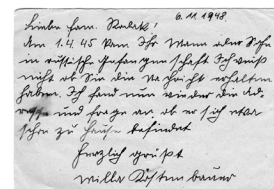 6.11.1948.
Liebe Fam. Rudek!
Am 1.4.45 kam Ihr Mann oder Sohn
in russische Gefangenschaft Ich weiß
nicht ob Sie die Nachricht erhalten
haben. Ich fand nun wieder die Ad-
resse und frage an, ob er sich etwa
schon zu Hause befindet
Herzlich grüßt
Willy